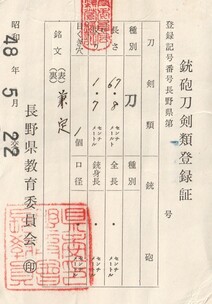 銃砲刀剣類登録証
登録記号番号長野県第　　号
刀剣類　銃砲
種別　刀　種別
長さ　67.8　センチメートル　全長　センチメートル
反り　1.7　センチメートル　銃身長　センチメートル
目くぎ穴　1個　口径　センチメートル
銘文　(表)　兼定
(裏)
昭和48年5月22日
長野県教育委員会㊞